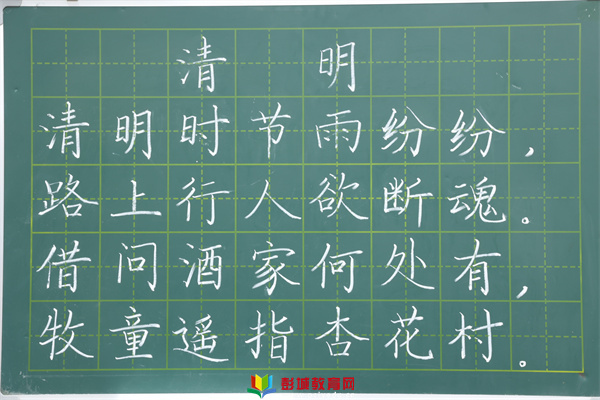 清明
清明时节雨纷纷，
路上行人欲断魂。
借问酒家何处有，
牧童遥指杏花村.
彭城教育网